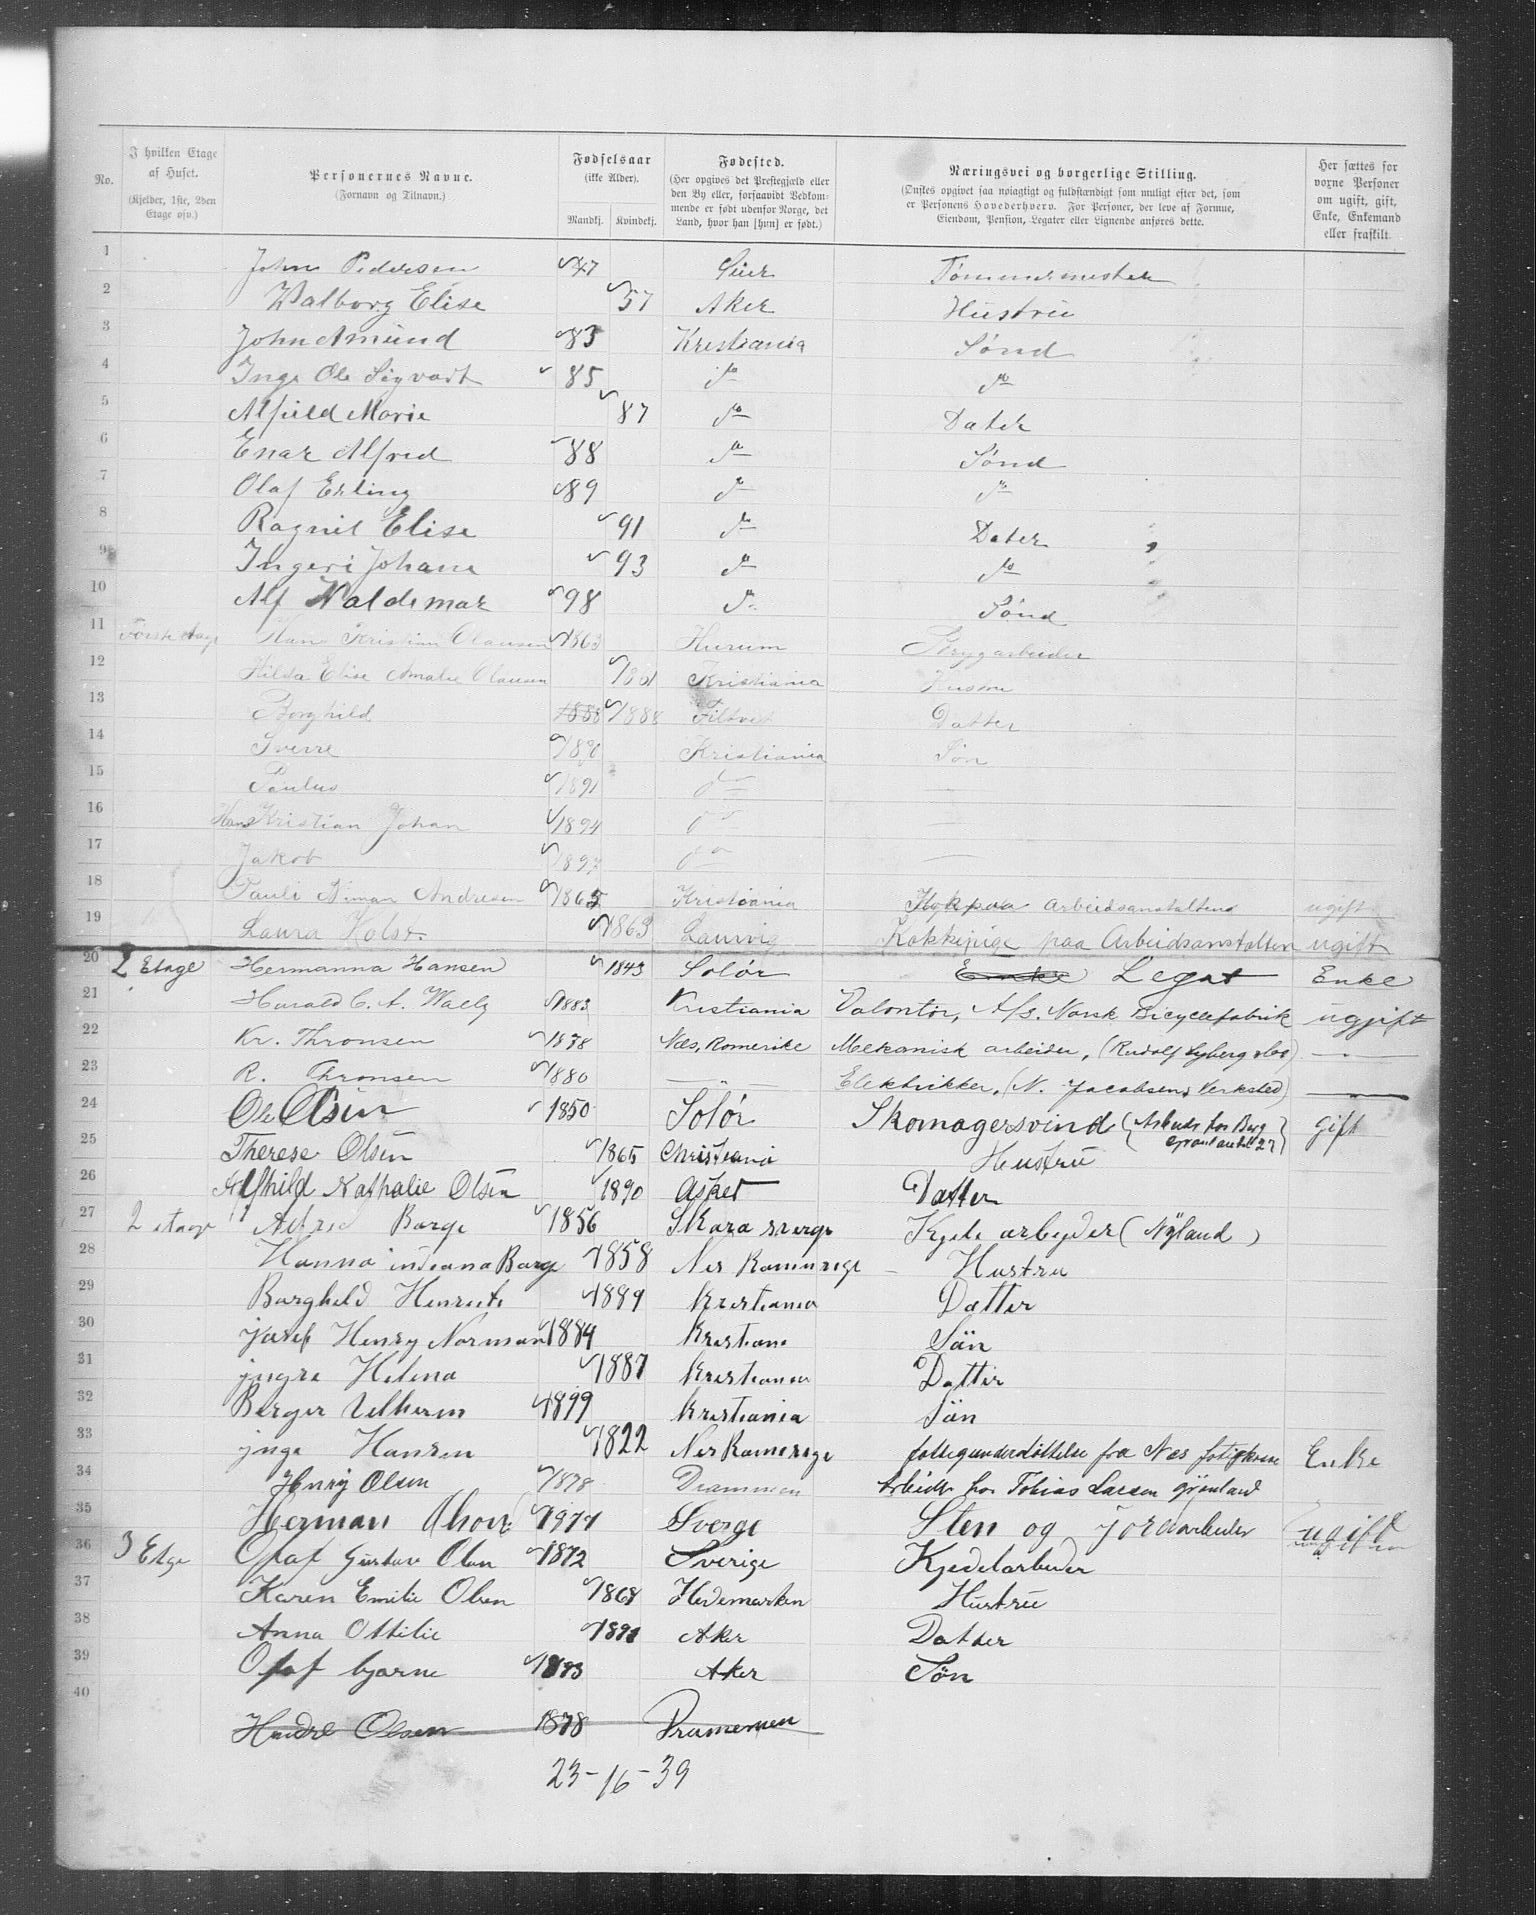 No.
I hvilken Etage af Huset.
(Kjelder, 1ste, 2den Etage osv.)
Personernes Navne.
(Fornavn og Tilnavn.)
Fødselsaar
(ikke Alder).
Mandkj. Kvindekj.
Fødested.
(Her opgives det Prestegjæld eller den By eller, forsaavidt Vedkommende er født udenfor Norge, det Land, hvor han [hun] er født.)
Næringsvei og borgerlige Stilling.
(Ønskes opgivet saa nøiagtigt og fuldstændigt som muligt efter det, som er Personens Hovederhverv. For Personer, der leve af Formue, Eiendom, Pension, Legater eller Lignende anføres dette.
Her sættes for voxne Personer om ugift, gift, Enke, Enkemand eller fraskilt.
1 John Pedersen 47 Tømmermester
2 Walborg Elise 57 Aker Hustru
3 John Amund 83 Kristiania Sønd
4 Inge Ole Sigvart 85 do do
5 Alfield Marie 87 do Dater
6 Enar Alfred 88 do Sønd
7 Olaf Erling 89 do do
8 Ragnil Elise 91 do Dater
9 Ingeri Johane 93 do do
10 Alf Waldemar 98 do Sønd
11 Første etage Hans Kristian Olausen 1863 Hurum
12 Hilda Elise Amalie Olausen 1861 Kristiania
13 Borghild 1888 1888 Filtvet Datter
14 Sverre 1890 Kristiania Søn
15 Paulus 1891 do
16 Hans Kristian Johan 1894 do
17 Jakob 1897 do
18 Pauli Andresen 1865 Kristiania paa Arbeidsanstalten ugift
19 Laura Holst 1863 Laurvig Kokkepige paa Arbeidsanstalten ugift
20 2 Etage Hermanna Hansen 1843 Solør Enke Legat Enke
21 Harald C. A. 1883 Kristiania Volontør, A/S. Norsk Bicyclefabrik ugift
22 Kr. Thronsen 1878 Næs, Romerike Mekanisk arbeider, (Rudolf
23 R. Thronsen 1880 — " — Elektrikker, (N. Jacobsens Verksted)
24 Ole Olsen 1850 Solør Skomagersvend (Arbeide hos Berg 27) gift
25 Therese Olsen 1865 Christiania Hustru
26 Alfhild Nathalie Olsen 1890 Asker Datter
27 2 etage Alfred Borge 1856 Skara sverge Kjele arbeyder (Nyland)
28 Hanna Borge 1858 Nes Romerige Hustru
29 Borghild Henriete 1889 Kristiania Datter
30 Josef Henry Norman 1884 Kristiania Sån
31 jngra Helena 1887 Kristiania Datter
32 Berger Velherm 1899 Kristiania Sån
33 jnge Hansen 1822 Nes Romerige fattigunderstøttelse fra Nes Enke
34 Henry Olsen 1878 Drammen Arbeider hos Tobias Larsen Grønland
35 Herman Sverge Sten og jordarbeider ugift
36 3 Etge Olaf Gustav Olsen 1872 Sverige Kjedelarbeider
37 Karen Emilie Olsen 1868 Hedemarken Hustru
38 Anna Ottilie Aker Datter
39 Olaf bjarne 1893 Aker Søn
40
Olsen 1878
23-16-39